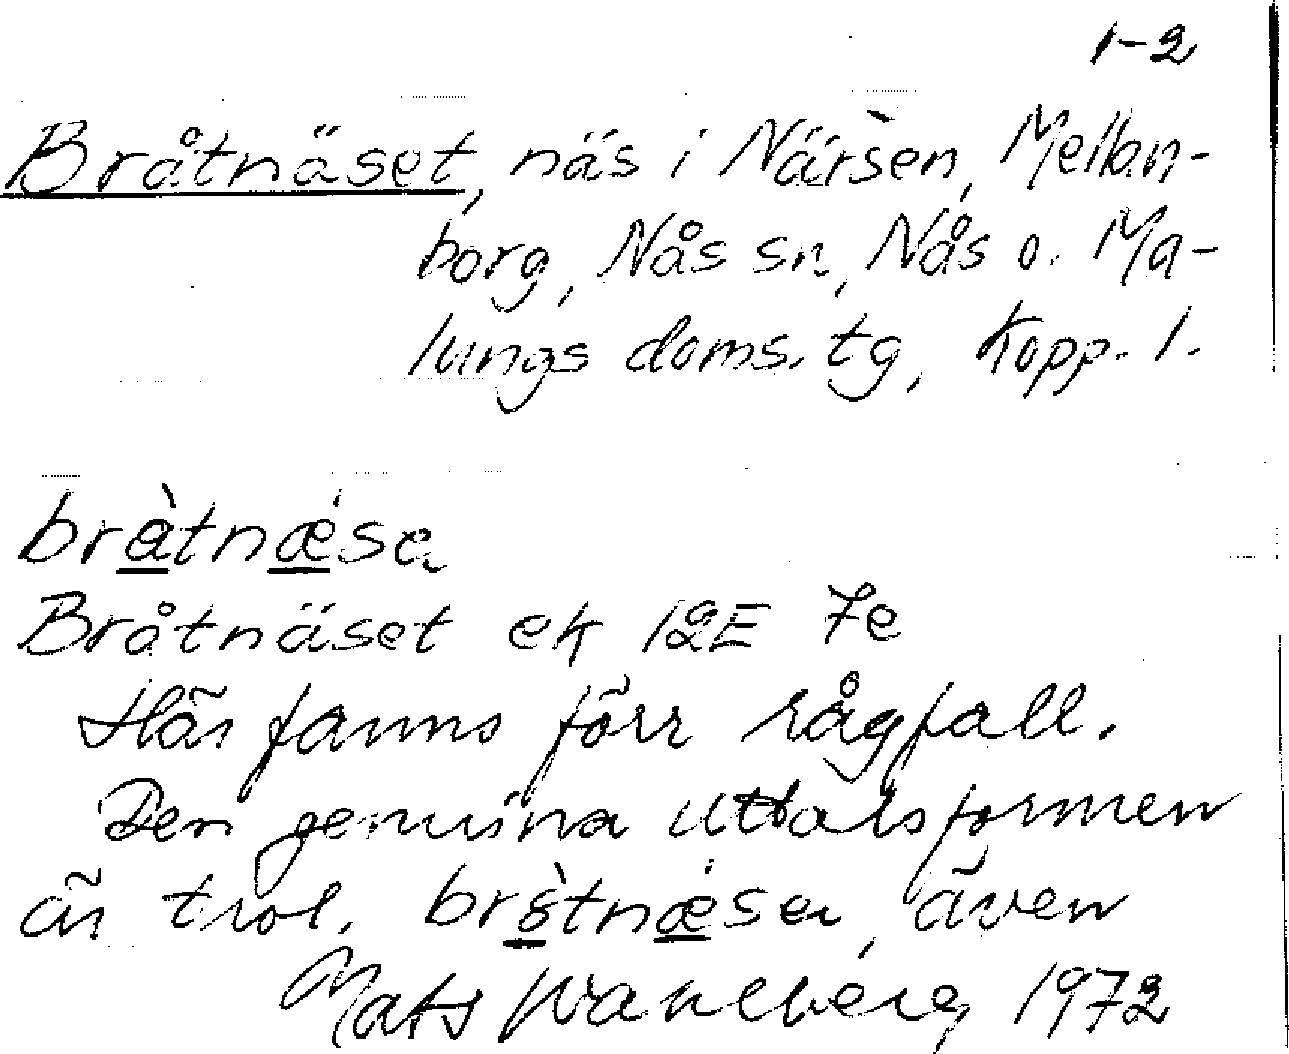 1-2
Bråtnäset, näs i Närsèn, Mellan-
borg, Nås sn, Nås o. Ma-
lungs doms. tg, Kopp. l.
bràtnǽsa
Bråtnäset ek 12E 7e
Här fanns förr rågfall.
Den genuina uttalsformen
är trol. även
Mats Wahlberg 1972